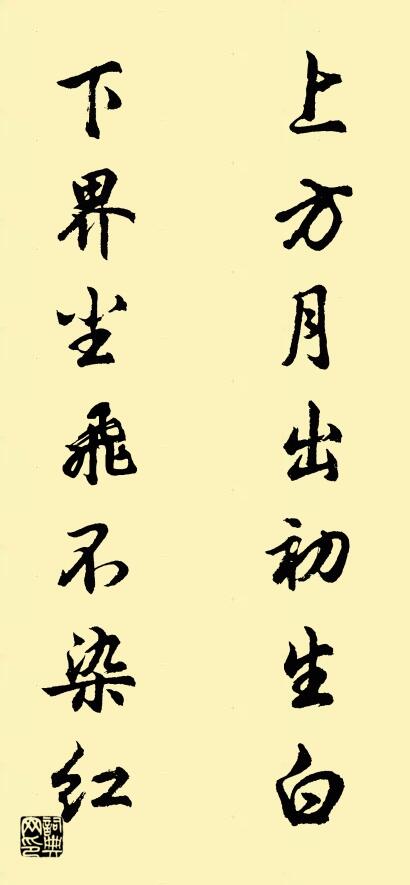 上方月出初生白
下界尘飞不染红
詞典
网印